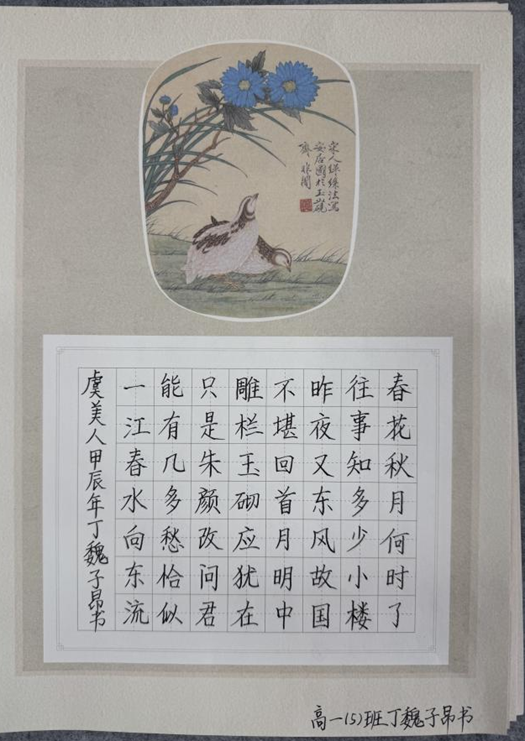 宋人緙絲法寫
安居圖於玉山硯
齋 非闇
春花秋月何时了
往事知多少小楼
昨夜又东风故国
不堪回首月明中
雕栏玉砌应犹在
只是朱颜改问君
能有几多愁恰似
一江春水向东流
虞美人甲辰年丁魏子昂书
高一(5)班丁魏子昂书